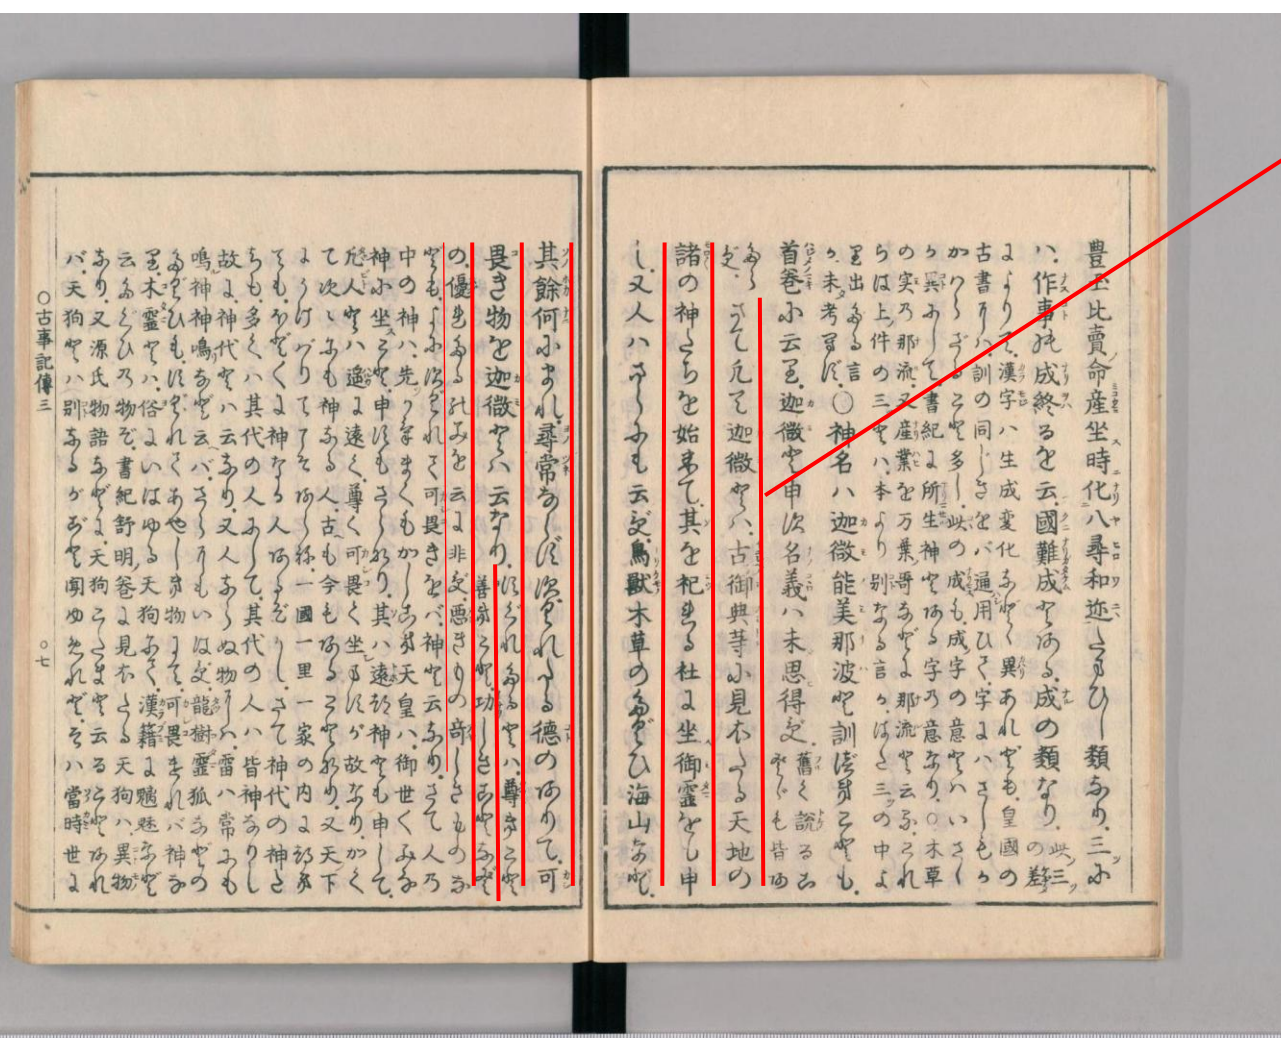 豊玉比賣命産坐時化八尋和迩たまひし類なり、三に
ハ、作事の成終るを云、國難成とある、成の類なり、此三ツの差
によりて、漢字ハ生成変化などゝ異あれども、皇國の
古書にハ、訓の同じきをバ通用ひて、字にハさしもかゝ
かハらざること多し、此の成も、成字の意とハいさゝ
か異にして、書紀に所生神とある字の意なり、○木草
の実乃那流、又産業を万葉哥などに那流と云ふ、これ
らは上件の三とハ、本より別なる言か、はた三ツの中よ
り出たる言か、未考得ず、○神名ハ迦微能美那波と訓べきことも、
首巻に云り、迦微と申す名義ハ未思得ず、舊く説るこ
とゞも皆あ
たらず、さて凡て迦微とハ、古御典等に見えたる天地の
諸の神たちを始めて、其を祀れる社に坐御霊をも申
し、又人ハさらにも云ず、鳥獣木草のたぐひ海山など、
其餘何にまれ、尋常ならずすぐれたる徳のありて、可
畏き物を迦微とハ云なり、すぐれたるとハ、尊きこと
善きこと、功しきことなど
の、優れたるのみを云に非ず、悪きもの奇しきものな
ども、よにすぐれて可畏きをバ、神と云なり、さて人乃
中の神ハ、先かけまくもかしこき天皇ハ、御世々みな
神に坐こと、申すもさらなり、其ハ遠つ神とも申して、
凡人とハ遥に遠く、尊く可畏く坐ますが故なり、かく
て次々にも神なる人、古も今もあることなり、又天下
にうけばりてこそあらね、一國一里一家の内に就き
ても、ほど〴〵に神なる人あるぞかし、さて神代の神た
ちも、多くハ其代の人にして、其代の人ハ皆神なりし
故に、神代とハ云なり、又人ならぬ物にハ、雷ハ常にも
鳴神神鳴など云ヘバ、さらにもいはず、龍樹靈狐などの
たぐひも、すぐれてあやしき物にて、可畏ければ神な
り、木靈とハ、俗にいはゆる天狗にて、漢籍に魑魅など
云たぐひ乃物ぞ、書紀舒明巻に見えたる天狗ハ、異物
なり、又源氏物語などに、天狗こだまと云ることあれ
バ、天狗とハ別なるがごと聞ゆめれど、そハ當時世に
○古事記傳三　○七